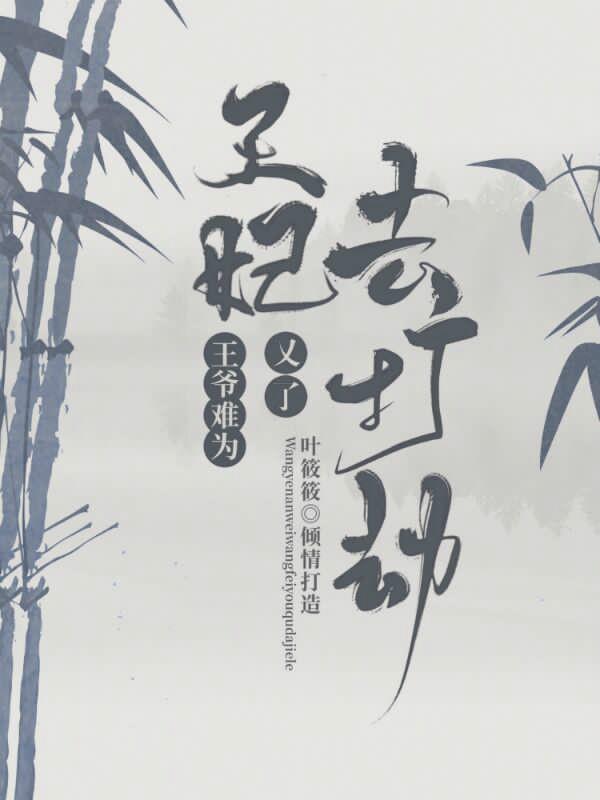 王妃
去打劫
王爷难为
又了
叶筱筱◎倾情打造
Wangyenanweiwangfeiyouqudajiele